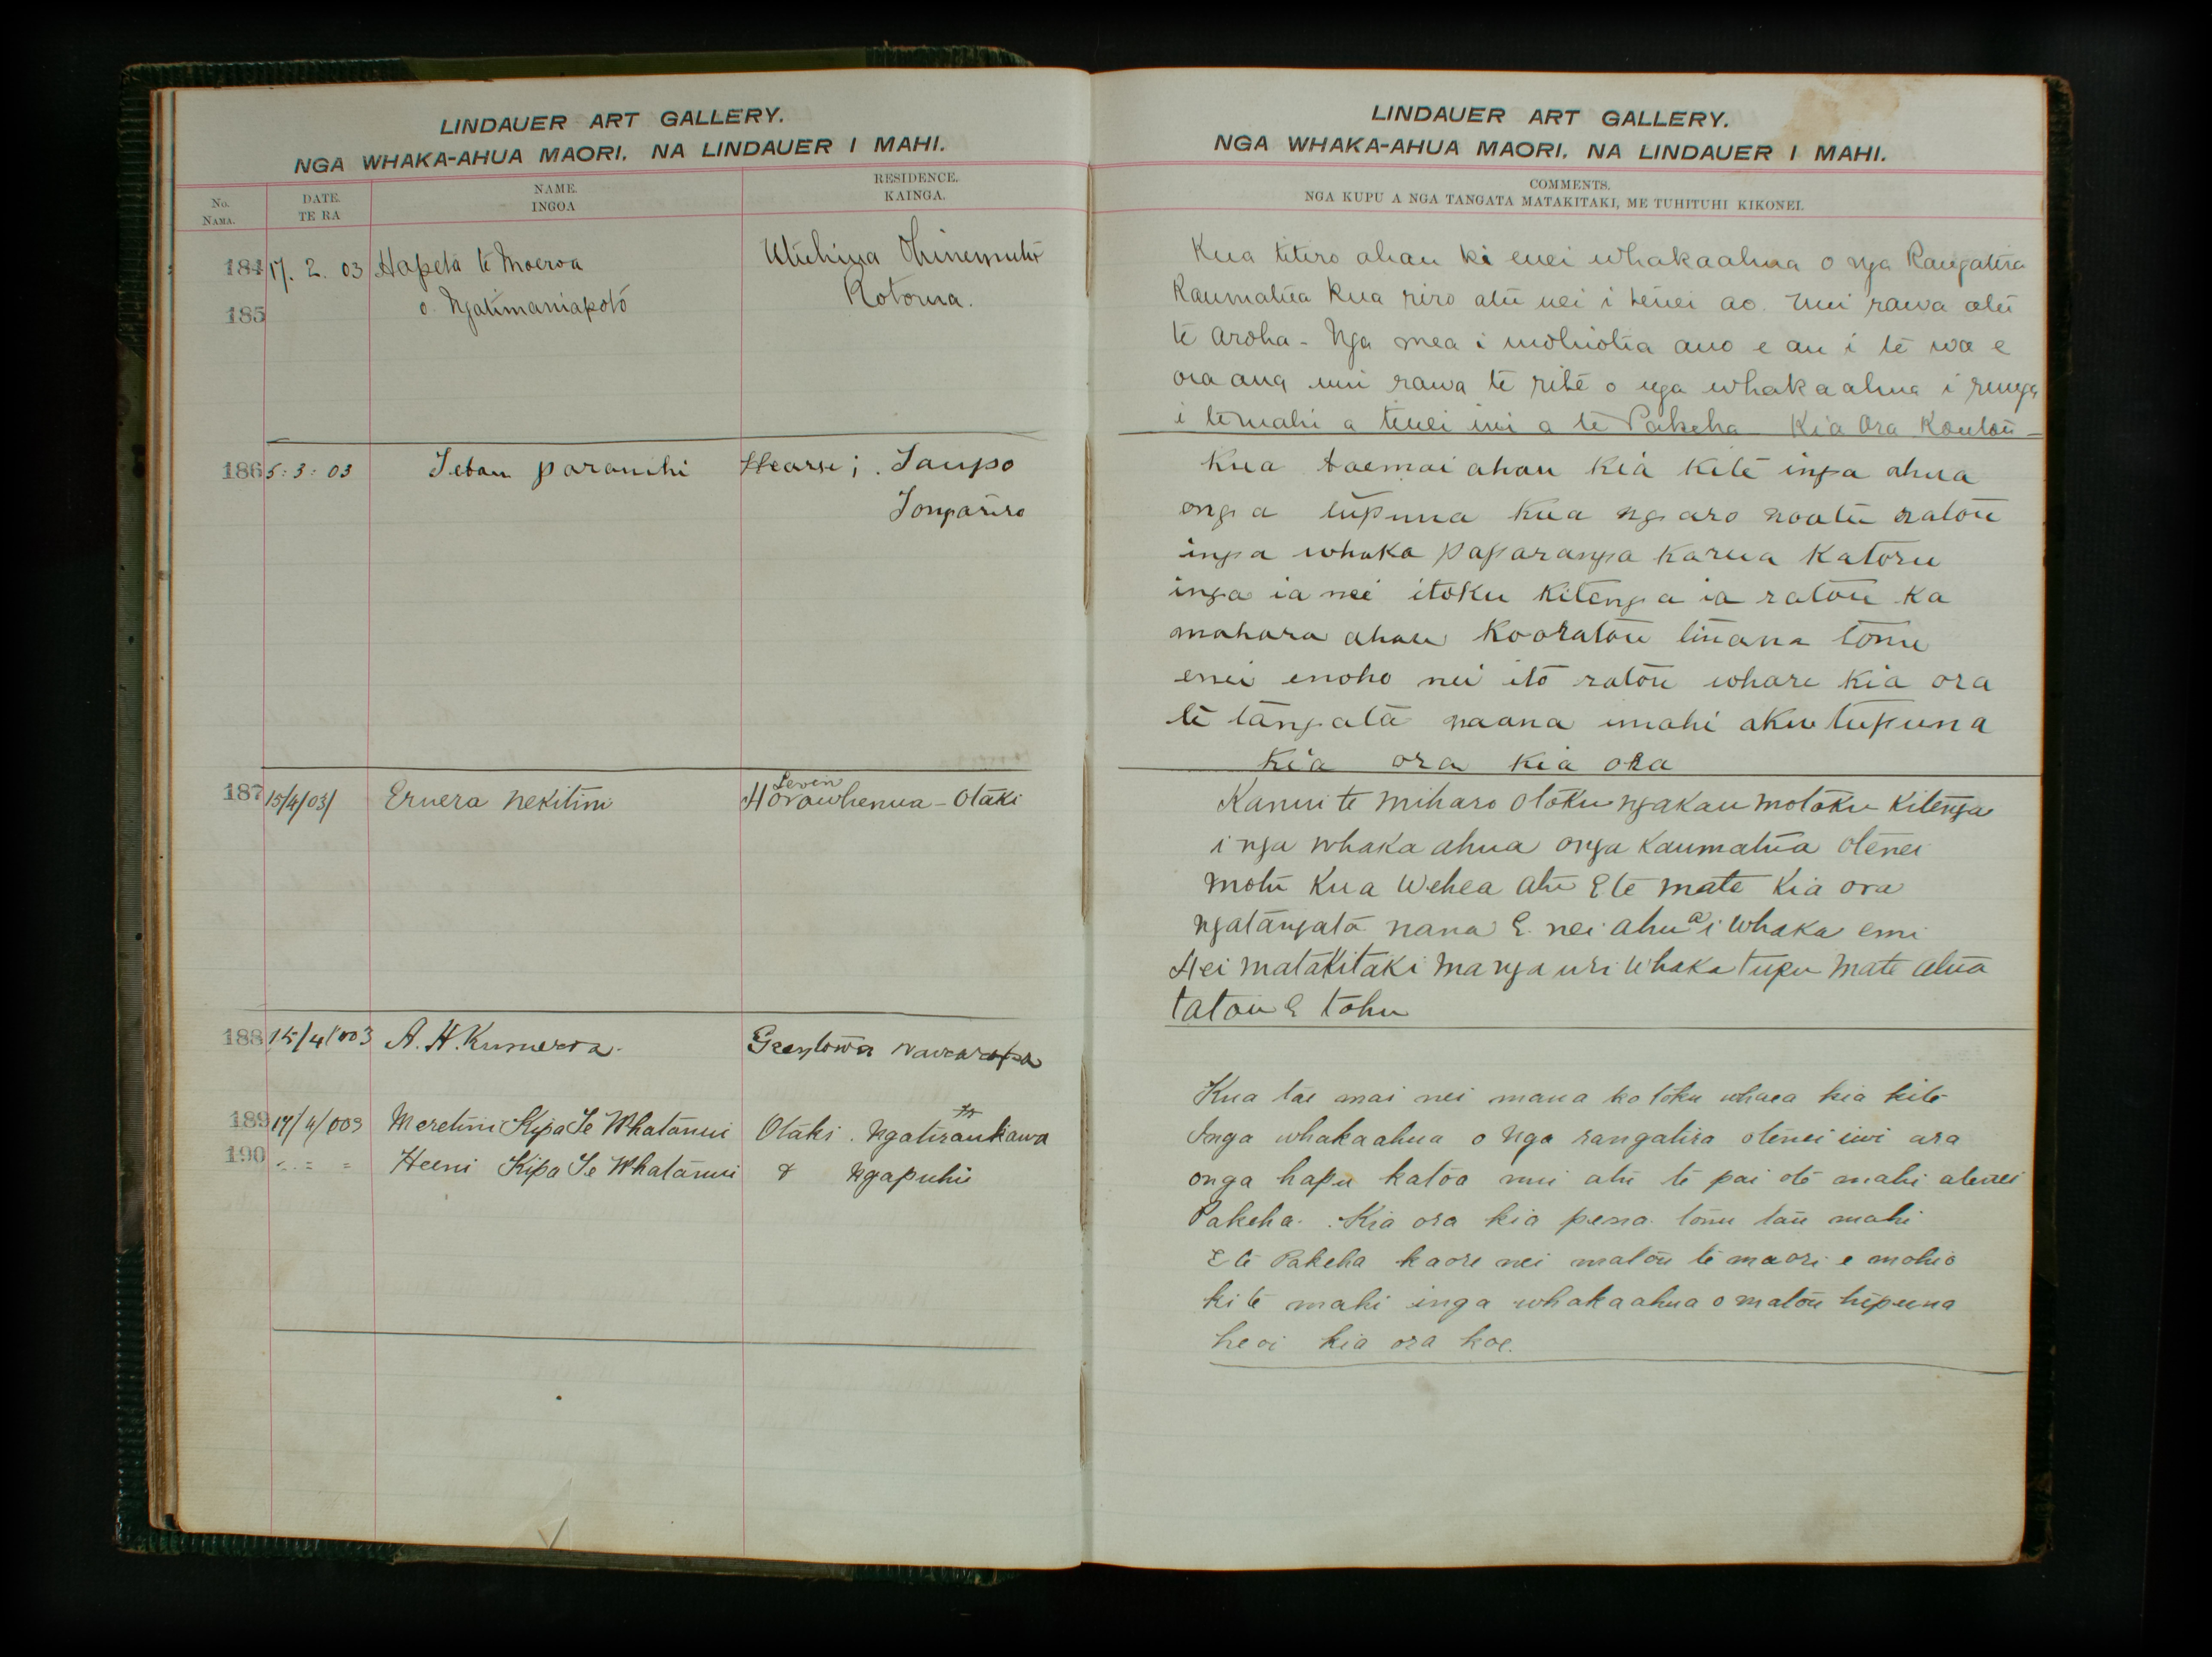 LINDAUER ART GALLERY.
NGA WHAKA-AHUA MAORI, NA LINDAUER I MAHI.
No. DATE. NAME. RESIDENCE.
NAMA. TE RA INGOA KAINGA.
184 17. 2. 03 Hapeta te Moeroa Utuhina Ohinemutu
185 o Ngatimaniapoto Rotorua.
186 5: 3: 03 Paranihi Taupo
Tongariro
187 15/4/03/ Eruera Nekitini Horowhenua - Otaki
Levin
188 15/4/003 A. H. Greytown
189 17/4/003 Meretini Kipa Te Whatanui Otaki. Ngatiraukawa
190 " = = Heeni Kipa Te Whatanui & Ngapuhi
LINDAUER ART GALLERY.
NGA WHAKA-AHUA MAORI, NA LINDAUER I MAHI.
COMMENTS.
NGA KUPU A NGA TANGATA MATAKITAKI, ME TUHITUHI KIKONEI.
Kua titiro ahau ki enei whakaahua o nga Rangatira
Kaumatua kua riro atu nei i tenei ao. nui rawa atu
te aroha - Nga mea i mohiotia ano e au i te wa e
ora ana nui rawa te rite o nga whakaahua i runga
i te mahi a tenei iwi a te Pakeha Kia Ora Koutou -
Kua taemai ahau kia kite inga ahua
onga tupuna kua ngaro noatu ratou
inga whaka paparanga karua katoru
inga ia nei itoku kitenga ia ratou ka
mahara ahau kooratou tinana tonu
enei enoho nei ito ratou whare kia ora
te tangata naana imahi aku tupuna
kia ora kia ora
Kanui te miharo otoku ngakau motoku kitenga
i nga whaka ahua onga kaumatua otenei
motu kua wehea atu E te mate kia ora
ngatangata nana E nei ahua i whaka emi
Hei matakitaki ma nga uri whaka tupu mate atua
tatou E tohu
Kua tae mai nei maua ko toku whaea kia kite
Inga whakaahua o Nga rangatira otenei iwi ara
onga hapu katoa nui atu te pai oto mahi atenei
Pakeha. Kia ora kia pena tonu tau mahi
E te Pakeha kaore nei matou te maori e mohio
ki te mahi inga whakaahua o matou tupuna
heoi kia ora koe.